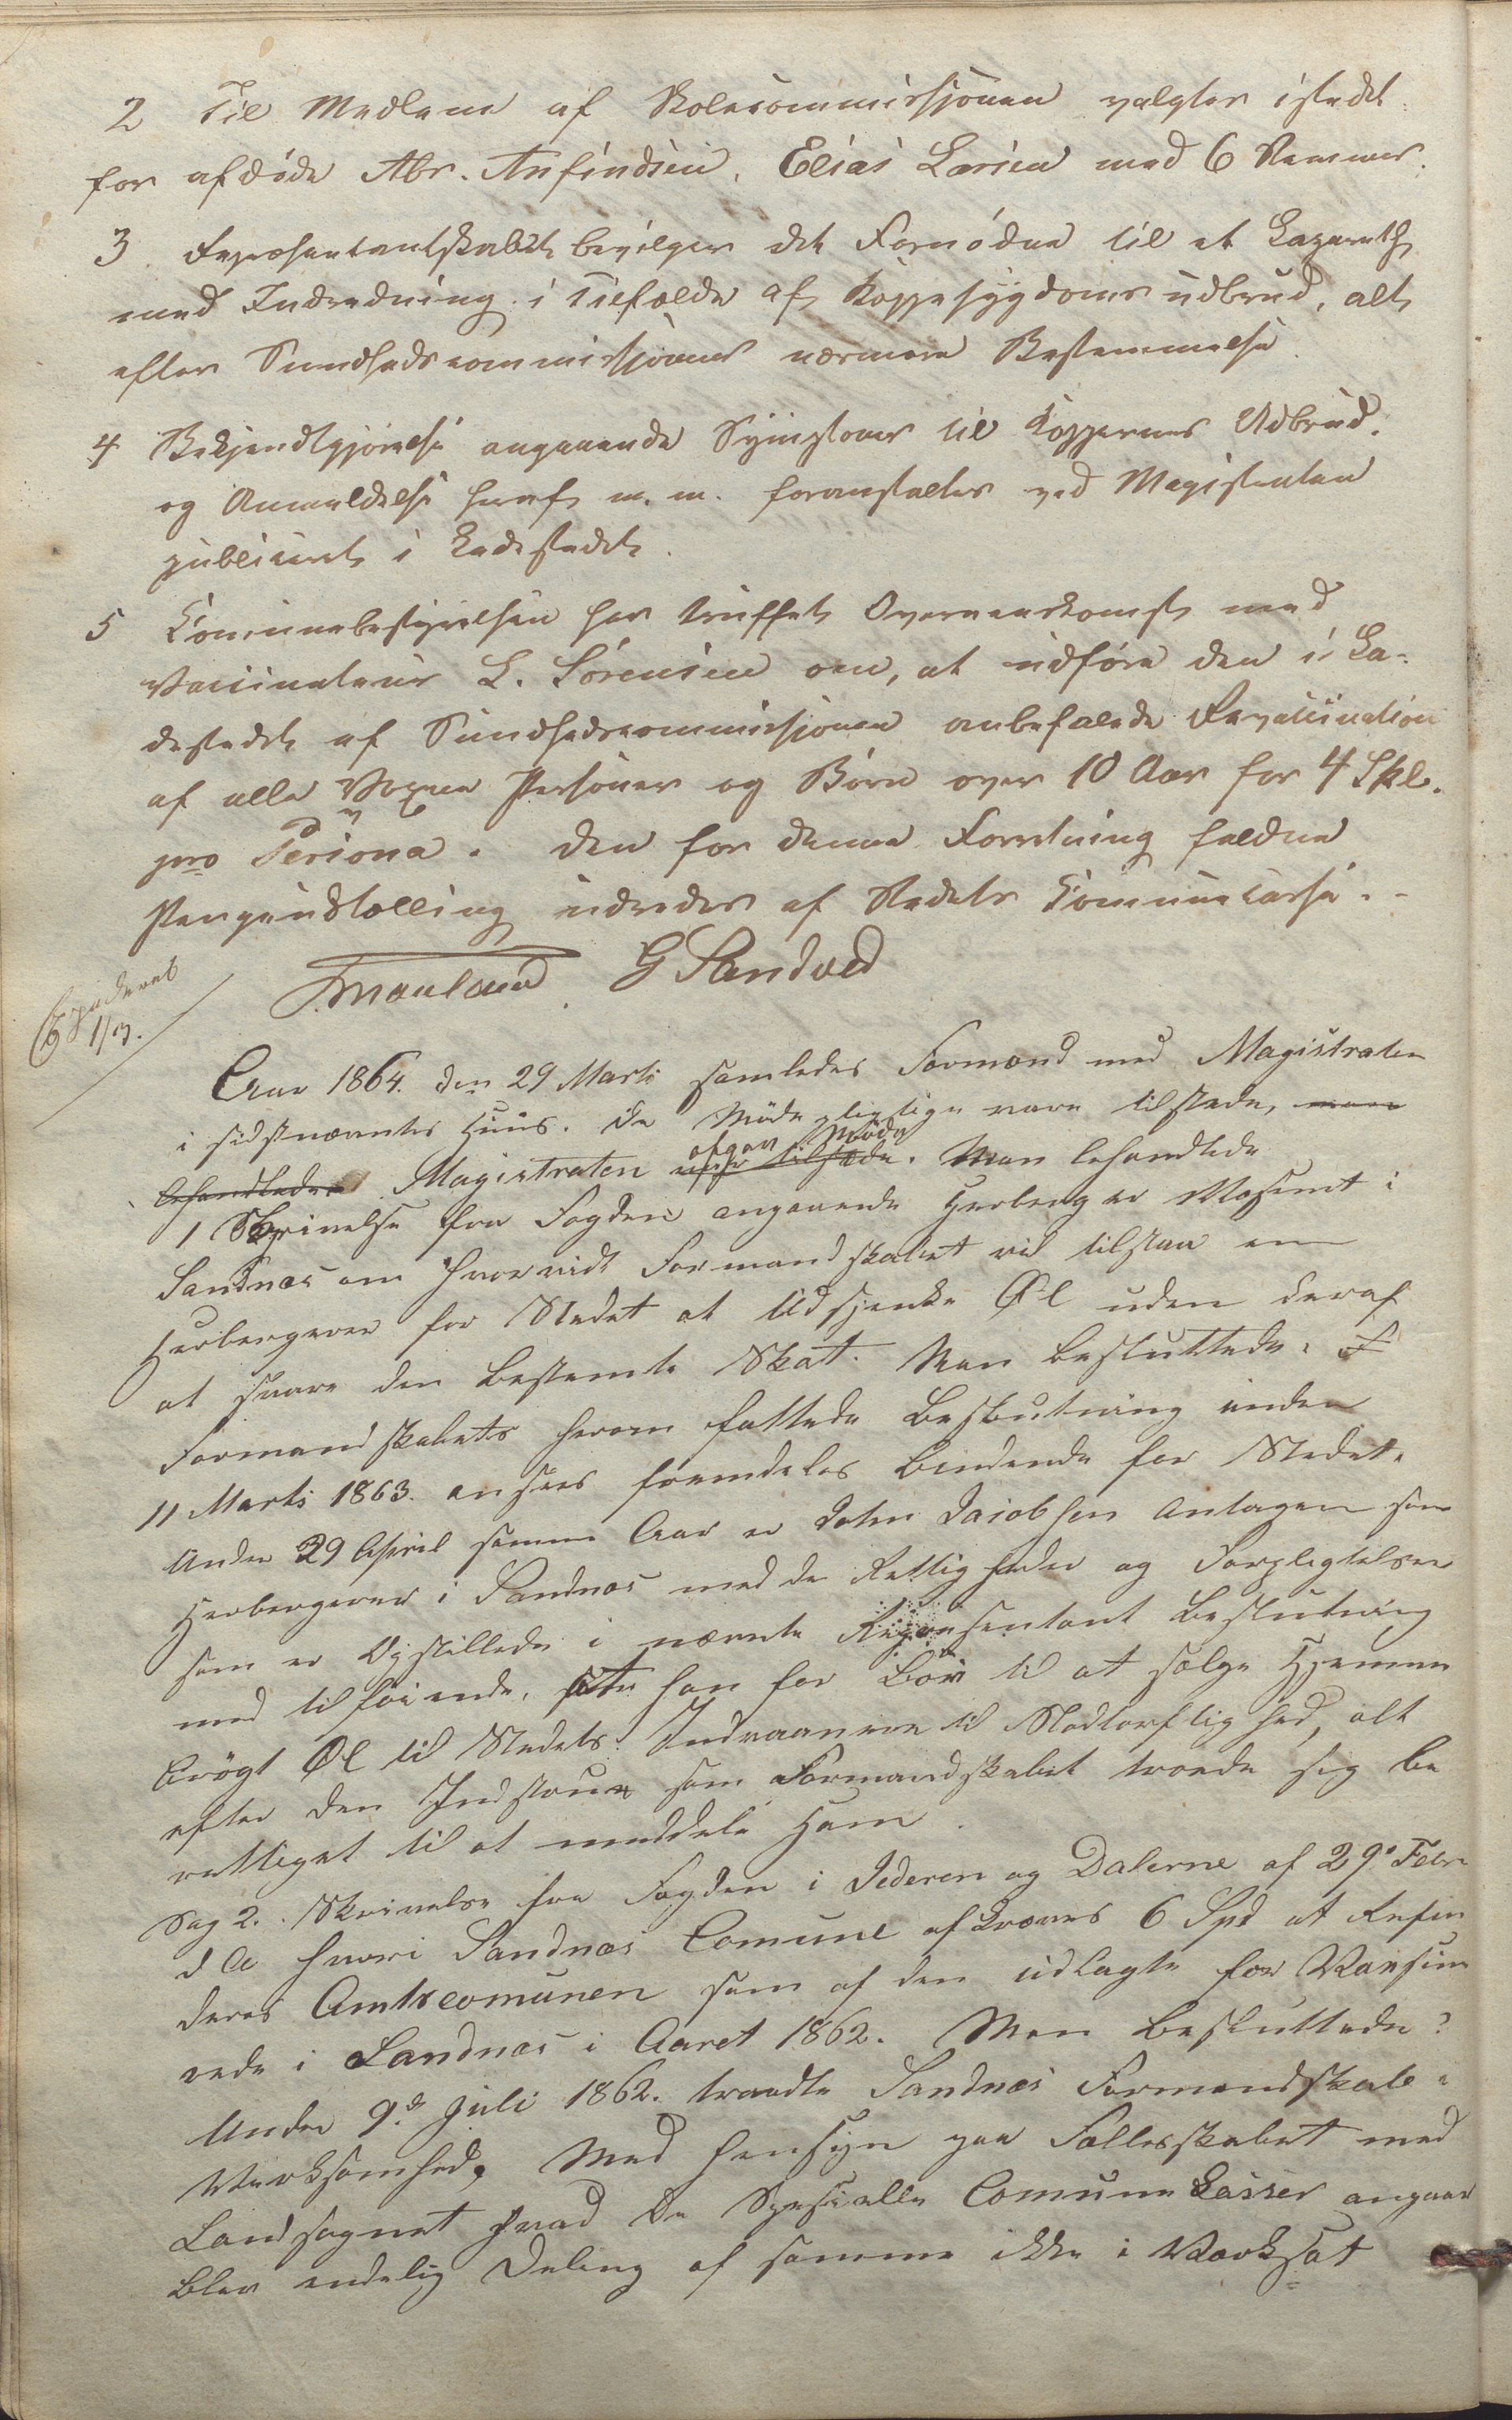 2 Til Medlem af Skolecommissjonen valgtes istedet
for afdöde Abr. Anfindsen, Elias Larsen med 6 Stemmer.
3 Repræsentantskabet bevilger det Fornødne til et Lazareth
med Indredning i Tilfælde af Koppesygdoms udbrud, alt
efter Sundhedscommissjonens nærmere Bestemmelse.
4 Bekjendtgjörelse angaaende Symptomer til Koppernes Udbrud,
og Anmeldelse heraf m. m. foranstaltes ved Magistraten
publiceret i Ladestedet.
5 Communebestyrelsen har truffet Overeenskomst med
Vaccinateur L. Sörensen om, at udföre den i La-
destedet af Sundhedscommissjonen anbefalede Revaccination
af alle Voxne Personer og Börn over 10 Aar for 4 Skl.
pro Persona. Den for denne Forretning faldne
Pengeudtælling udredes af Stedets Communecasse.
F. Mauland. G Sandved
Expederet
1/7.
Aar 1864. den 29 Marts samledes Formænd med Magistraten
i sidstnævntes Huus. De Mödepligtige vare tilstede, man
behandlede Magistraten var tilstede. Man behandlede
afgav Möde
1 Skrivelse fra Fogden angaaende Herberger Væsent i
Sandnæs om hvorvidt Formandskabet vil tilstaa en
Herbergerer for Stedet at Udskjenke Öl uden deraf
at svare den bestemte Skat. Man besluttede:
Formandskabets herom fattede Beslutning under
11 Marts 1863. ansees fremdeles bindende for Stedet.
Under 29 April samme Aar er John Jacobsen antagen som
Herbergerer i Sandnæs med de Rettigheder og Forpligtelser
som er Opstillede i nævnte Repræsentant Beslutning
med tilföiende, at han for Lov til at sælge Hjemme
brögt Öl til Stedets Indvaanere til Nödtörftighed, alt
efter den Instrux som Formandskabet troede sig be
rettiget til at meddele Ham.
Sag 2. Skrivelse fra Fogden i Jederen og Dalerne af 29 Febr
d A hvori Sandnæs Comune afkræves 6 Spd at Refun
deres Amtscomunen som af den udlagte for
rede i Sandnæs i Aaret 1862. Man besluttede:
Under 9de Juli 1862. traadte Sandnæs Formandskab i
Virksomhed, Med Hensyn paa Fællesskabet med
Landsognet hvad De Specielle Comune Casser angaar
blev endelig Deling af samme ikke i Værksat